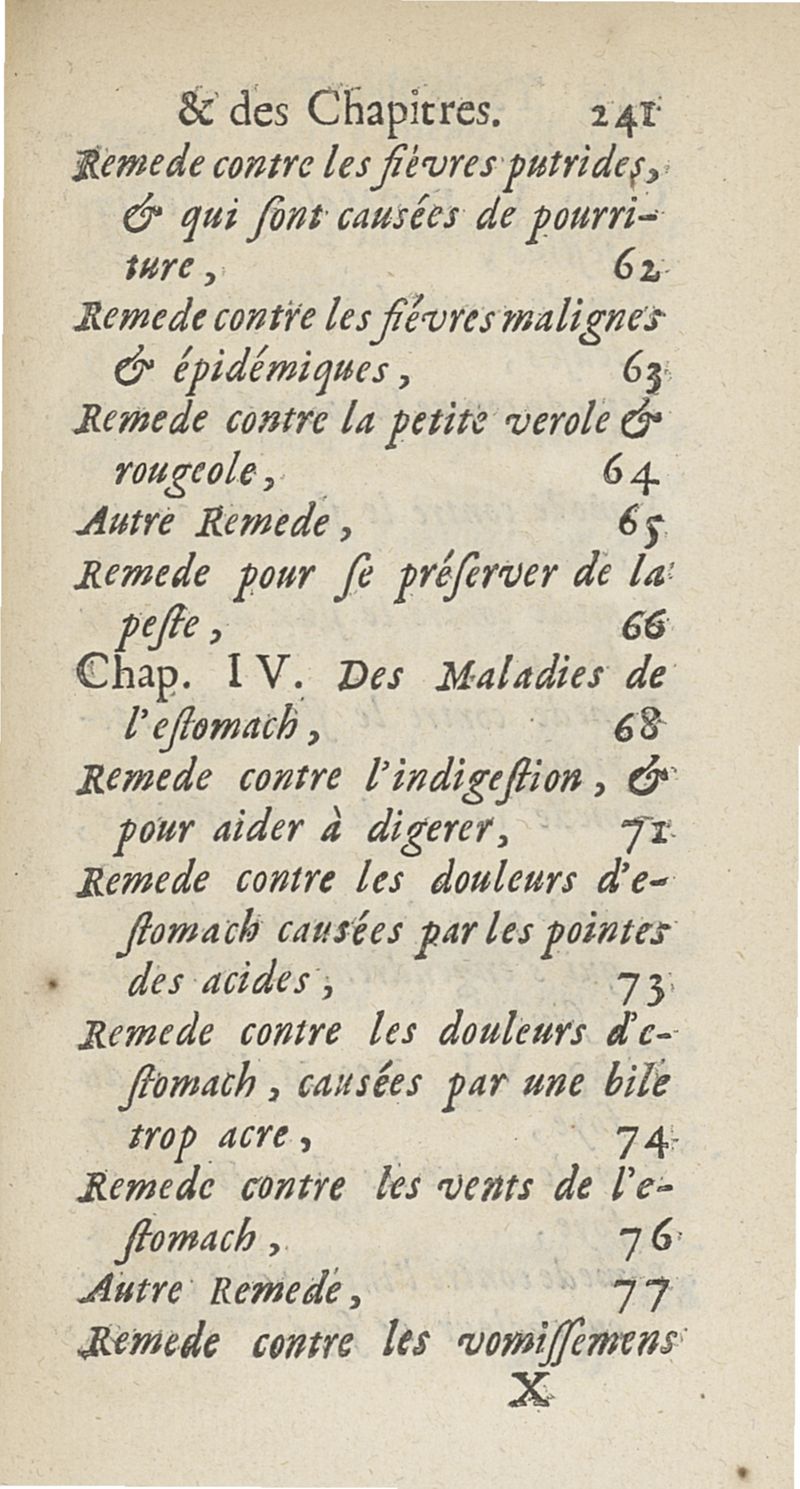 & des Chapitres. 241
Remede contre les fiévres putrides,
& qui ſont causées de pourri-
ture, 62
Remede contre les fiévres malignes
& épidémiques, 63
Remede contre la petite verole &
rougeole, 64
Autre Remede, 65
Remede pour ſe préſerver de la
peſte, 66
Chap. IV. Des Maladies de
l'eſtomach, 68
Remede contre l'indigeſtion, &
pour aider à digerer, 71
Remede contre les douleurs d'e-
ſtomach causées par les pointes
des acides, 73
Remede contre les douleurs d'e-
ſtomach, causées par une bile
trop acre, 74
Remede contre les vents de l'e-
ſtomach, 76
Autre Remede, 77
Remede contre les vomiſſemens
X